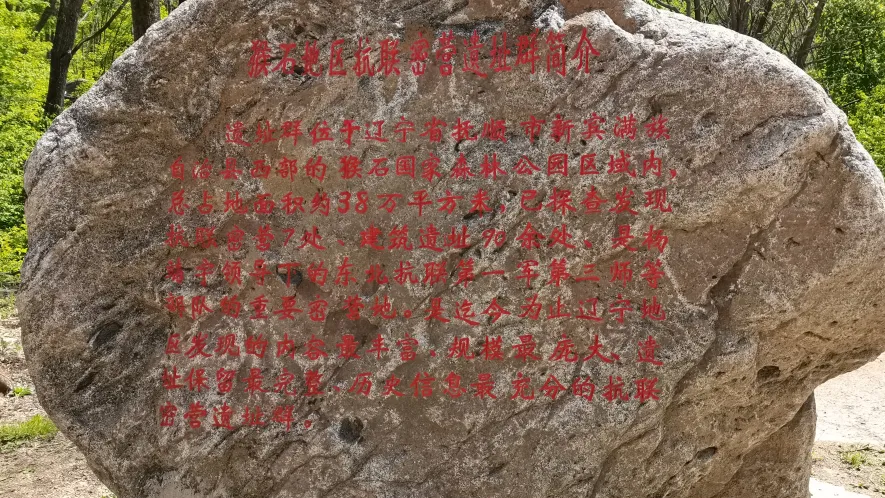 猴石地区抗联密营遗址群简介
遗址群位于辽宁省抚顺市新宾满族
自治县西部的猴石国家森林公园区域内，
总占地面积约38万平方米。已探查发现
抗联密营7处、建筑遗址90余处。是杨
靖宇领导下的东北抗联第一军第三师等
部队的重要密营地。是迄今为止辽宁地
区发现的内容最丰富、规模最庞大、遗
址保留最完整、历史信息最充分的抗联
密营遗址群。